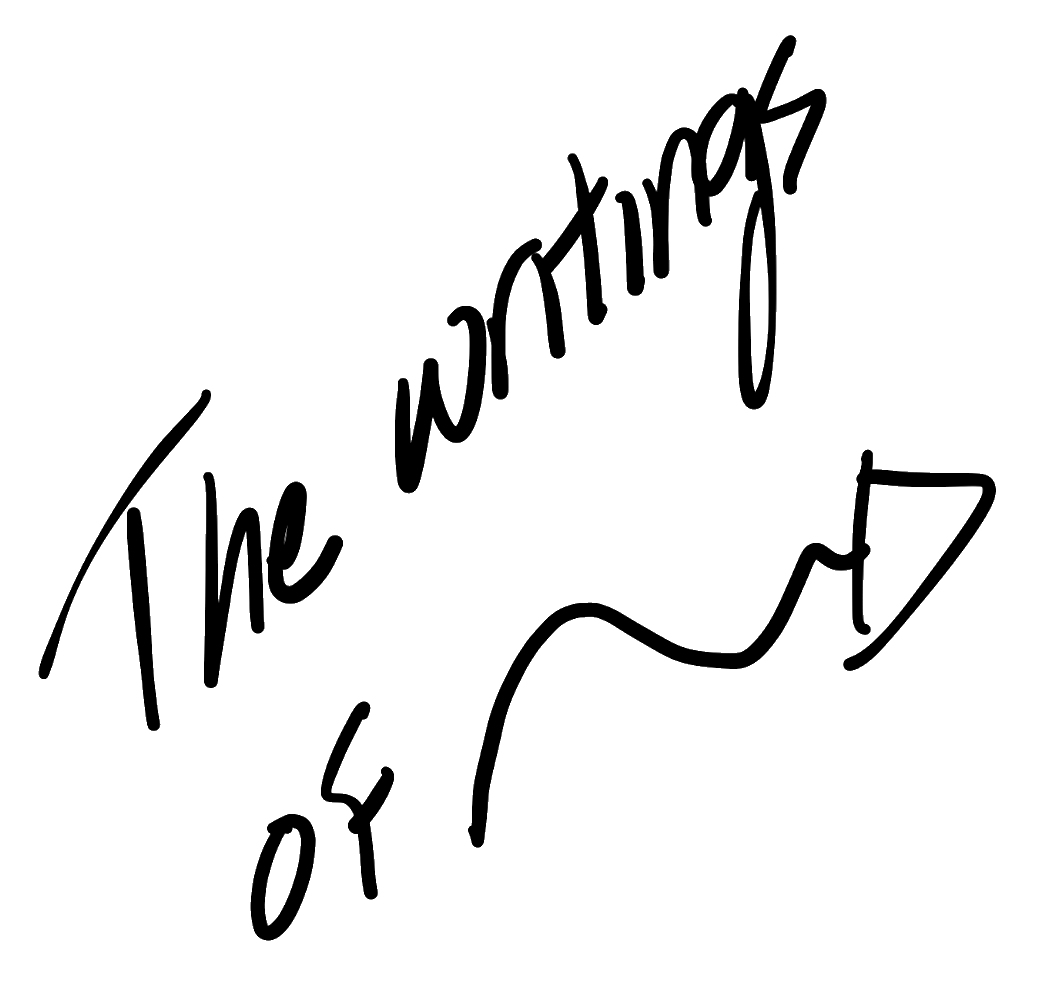 The writings
of